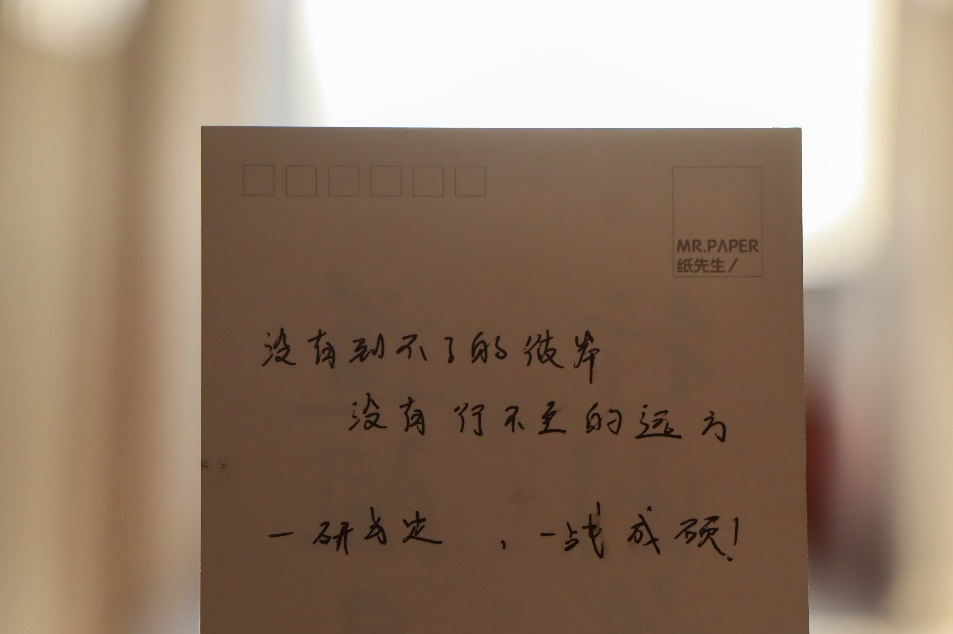 MR.PAPER
纸先生/
没有到不了的彼岸
没有行不至的远方
一研为定，一战成硕！